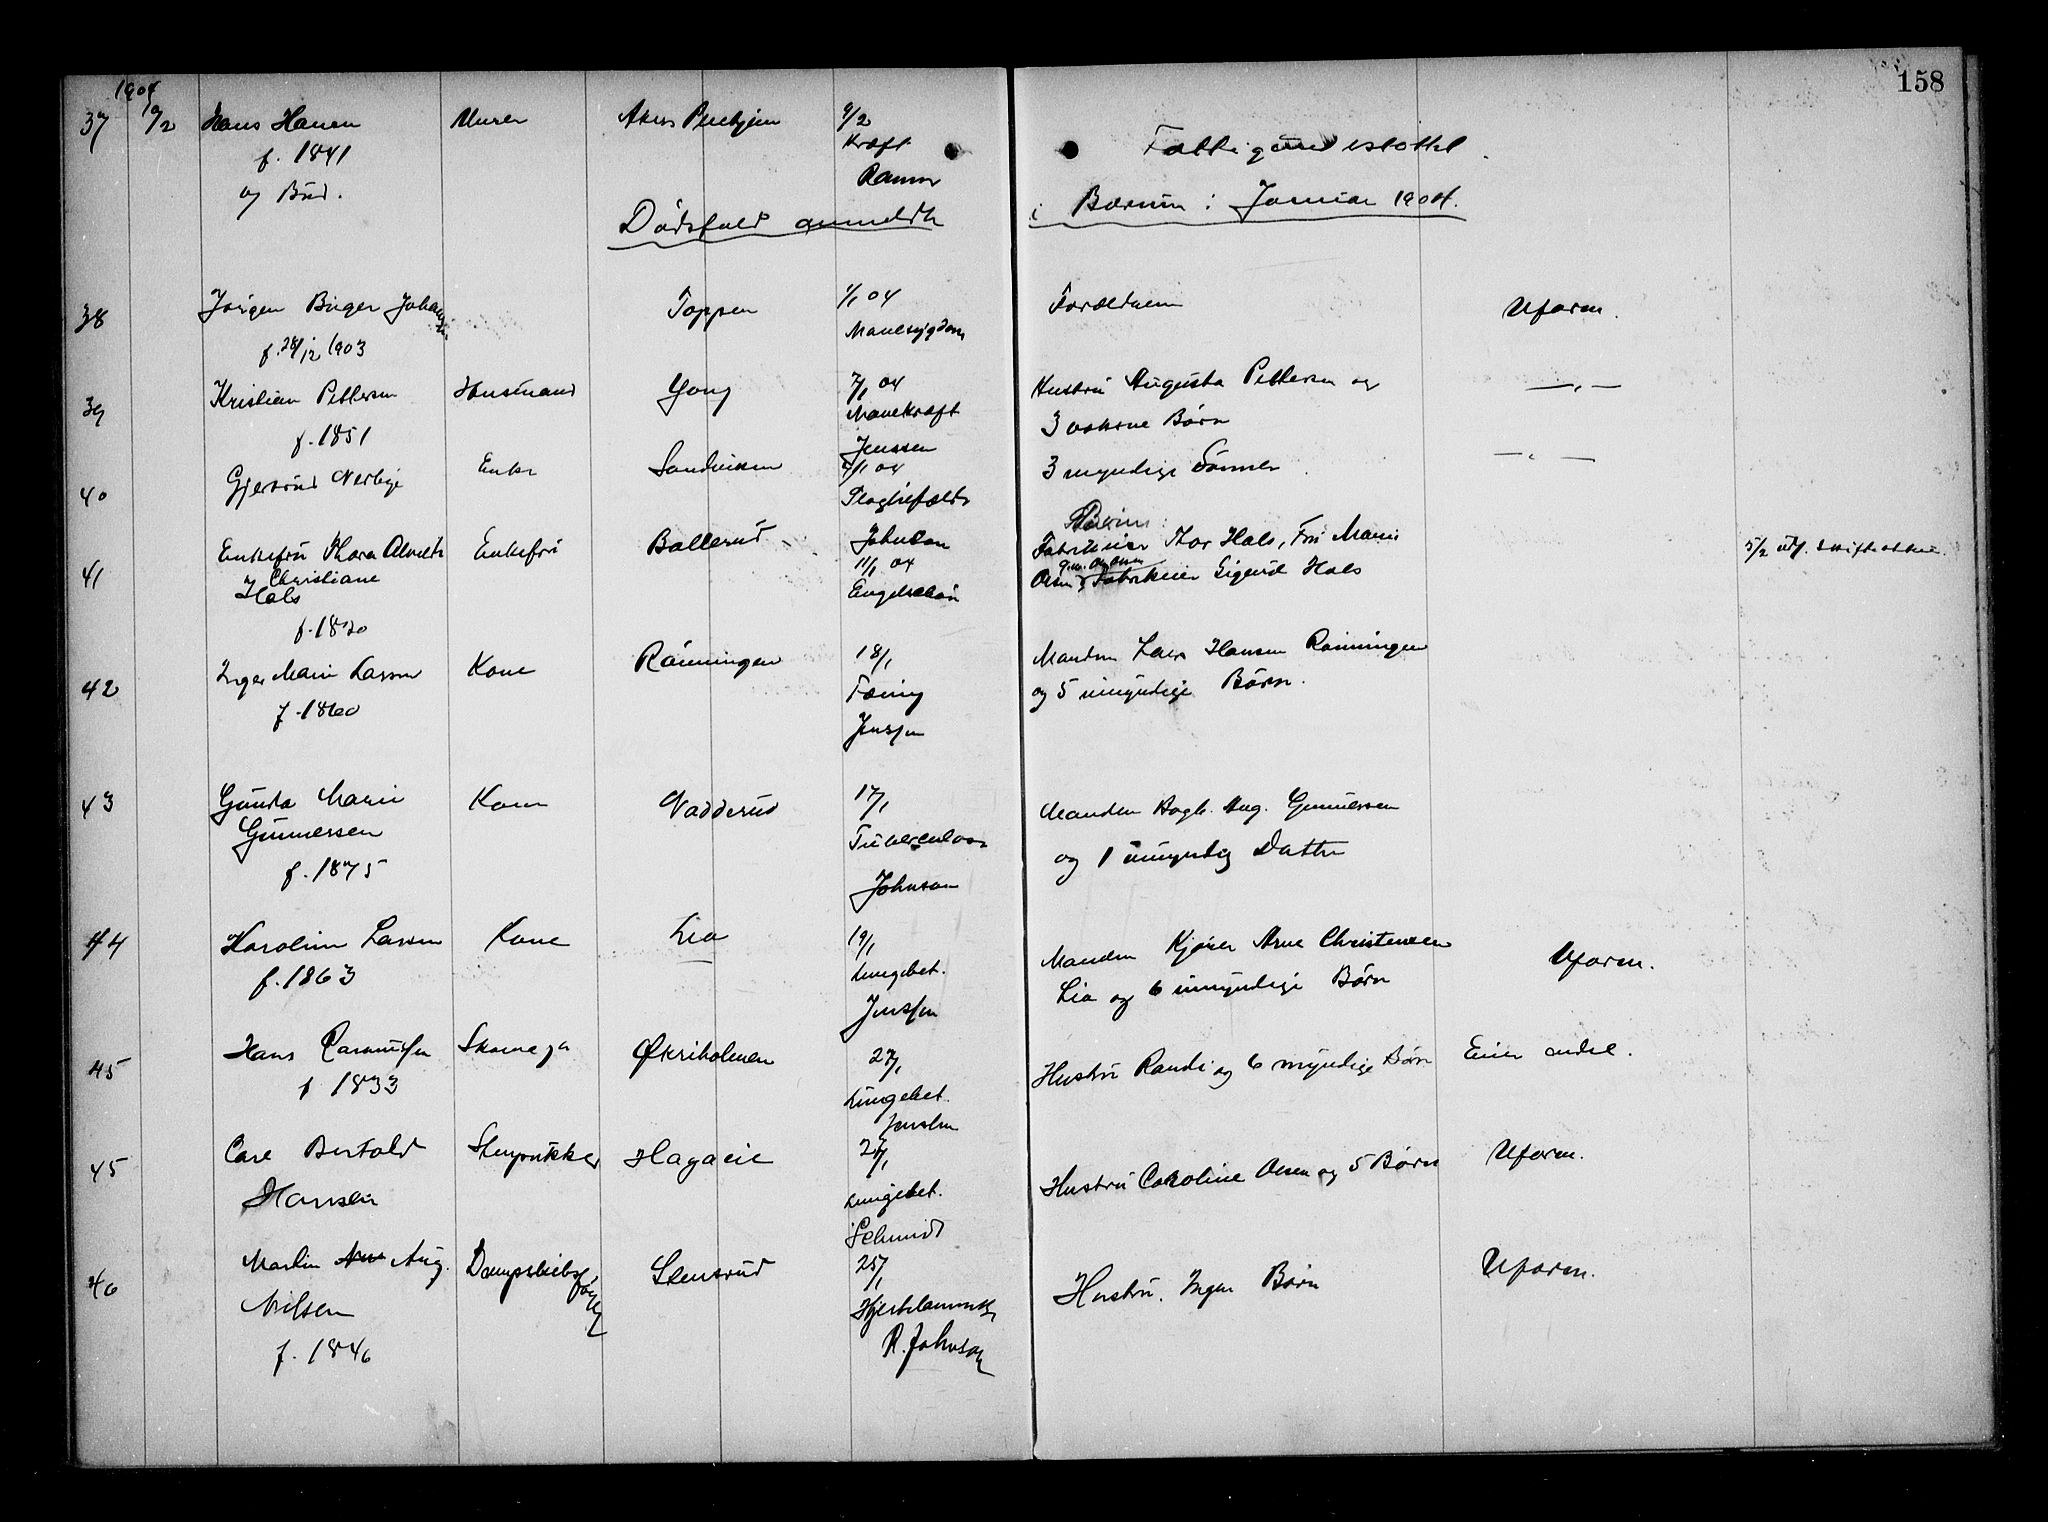 158
1904
37 10/2 Hans Hansen Murer Akers Pleiehjem 9/2
f. 1841 Kræft Fattigunderstøttet
og Bud. Ramm
Dødsfald anmeldte i Bærum i Januar 1904.
38 Jørgen Birger Johansen Toppen 1/1 04 Forældrene Uform.
f. 28/12 1903 Mavesygdom
39 Kristian Pettersen Husmand Gong 7/1 04 Hustru Augusta Pettersen og —„—
f. 1851 Mavekræft 3 voksne Børn
Jenssen
40 Gjertrud Nerbye Enke Sandviken 9/1 04 3 myndige Sønner —„—
Slagtilfælde
Johnson
41 Enkefru Thora Alvilde Enkefru Ballerud 11/1 04 Børn: Fabrikeier Thor Hals, Fru Marie 5/2 utf. skifteattest.
Christiane Hals Olsen g.m. O. Olsen Fabrikeier Sigurd Hals
f. 1820
42 Inger Marie Larsen Kone Rønningen 18/1 Manden Lars Hansen Rønningen
f. 1860 Tæring og 5 umyndige Børn.
Jenssen
43 Gunda Marie Kone Nadderud 17/1 Manden Bogh. Aug. Gunnersen
Gunnersen Tuberculose og 1 umyndig Datter
f. 1875 Johnson
44 Karoline Larsen Kone Lia 19/1 Manden Kjører Arne Christensen Uform.
f. 1863 Lungebet. Lia og 6 umyndige Børn
Jenssen
45 Hans Rasmussen Skomager Økriholmen 27/1 Hustru Randi og 6 myndige Børn Eier andel.
f 1833 Lungebet.
Jenssen
45 Carl Bertold Stenpukker Hagaeie 27/1 Hustru Caroline Olsen og 5 Børn Uform.
Hansen Lungebet.
Schmidt
46 Martin Aug. Dampskibsfører Stensrud 25/1 Hustru. Ingen Børn Uform.
Nilsen Hjertelammelse
f. 1846 R. Johnson